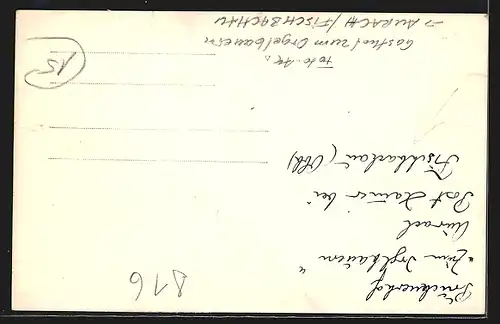 "Zum Orglbauern"
Aurach
Post Hammer bei
Fischbachau (Obb)
Foto-AK.
Gasthof zum Orgelbauern
→ AURACH/FISCHBACHAU
15
816